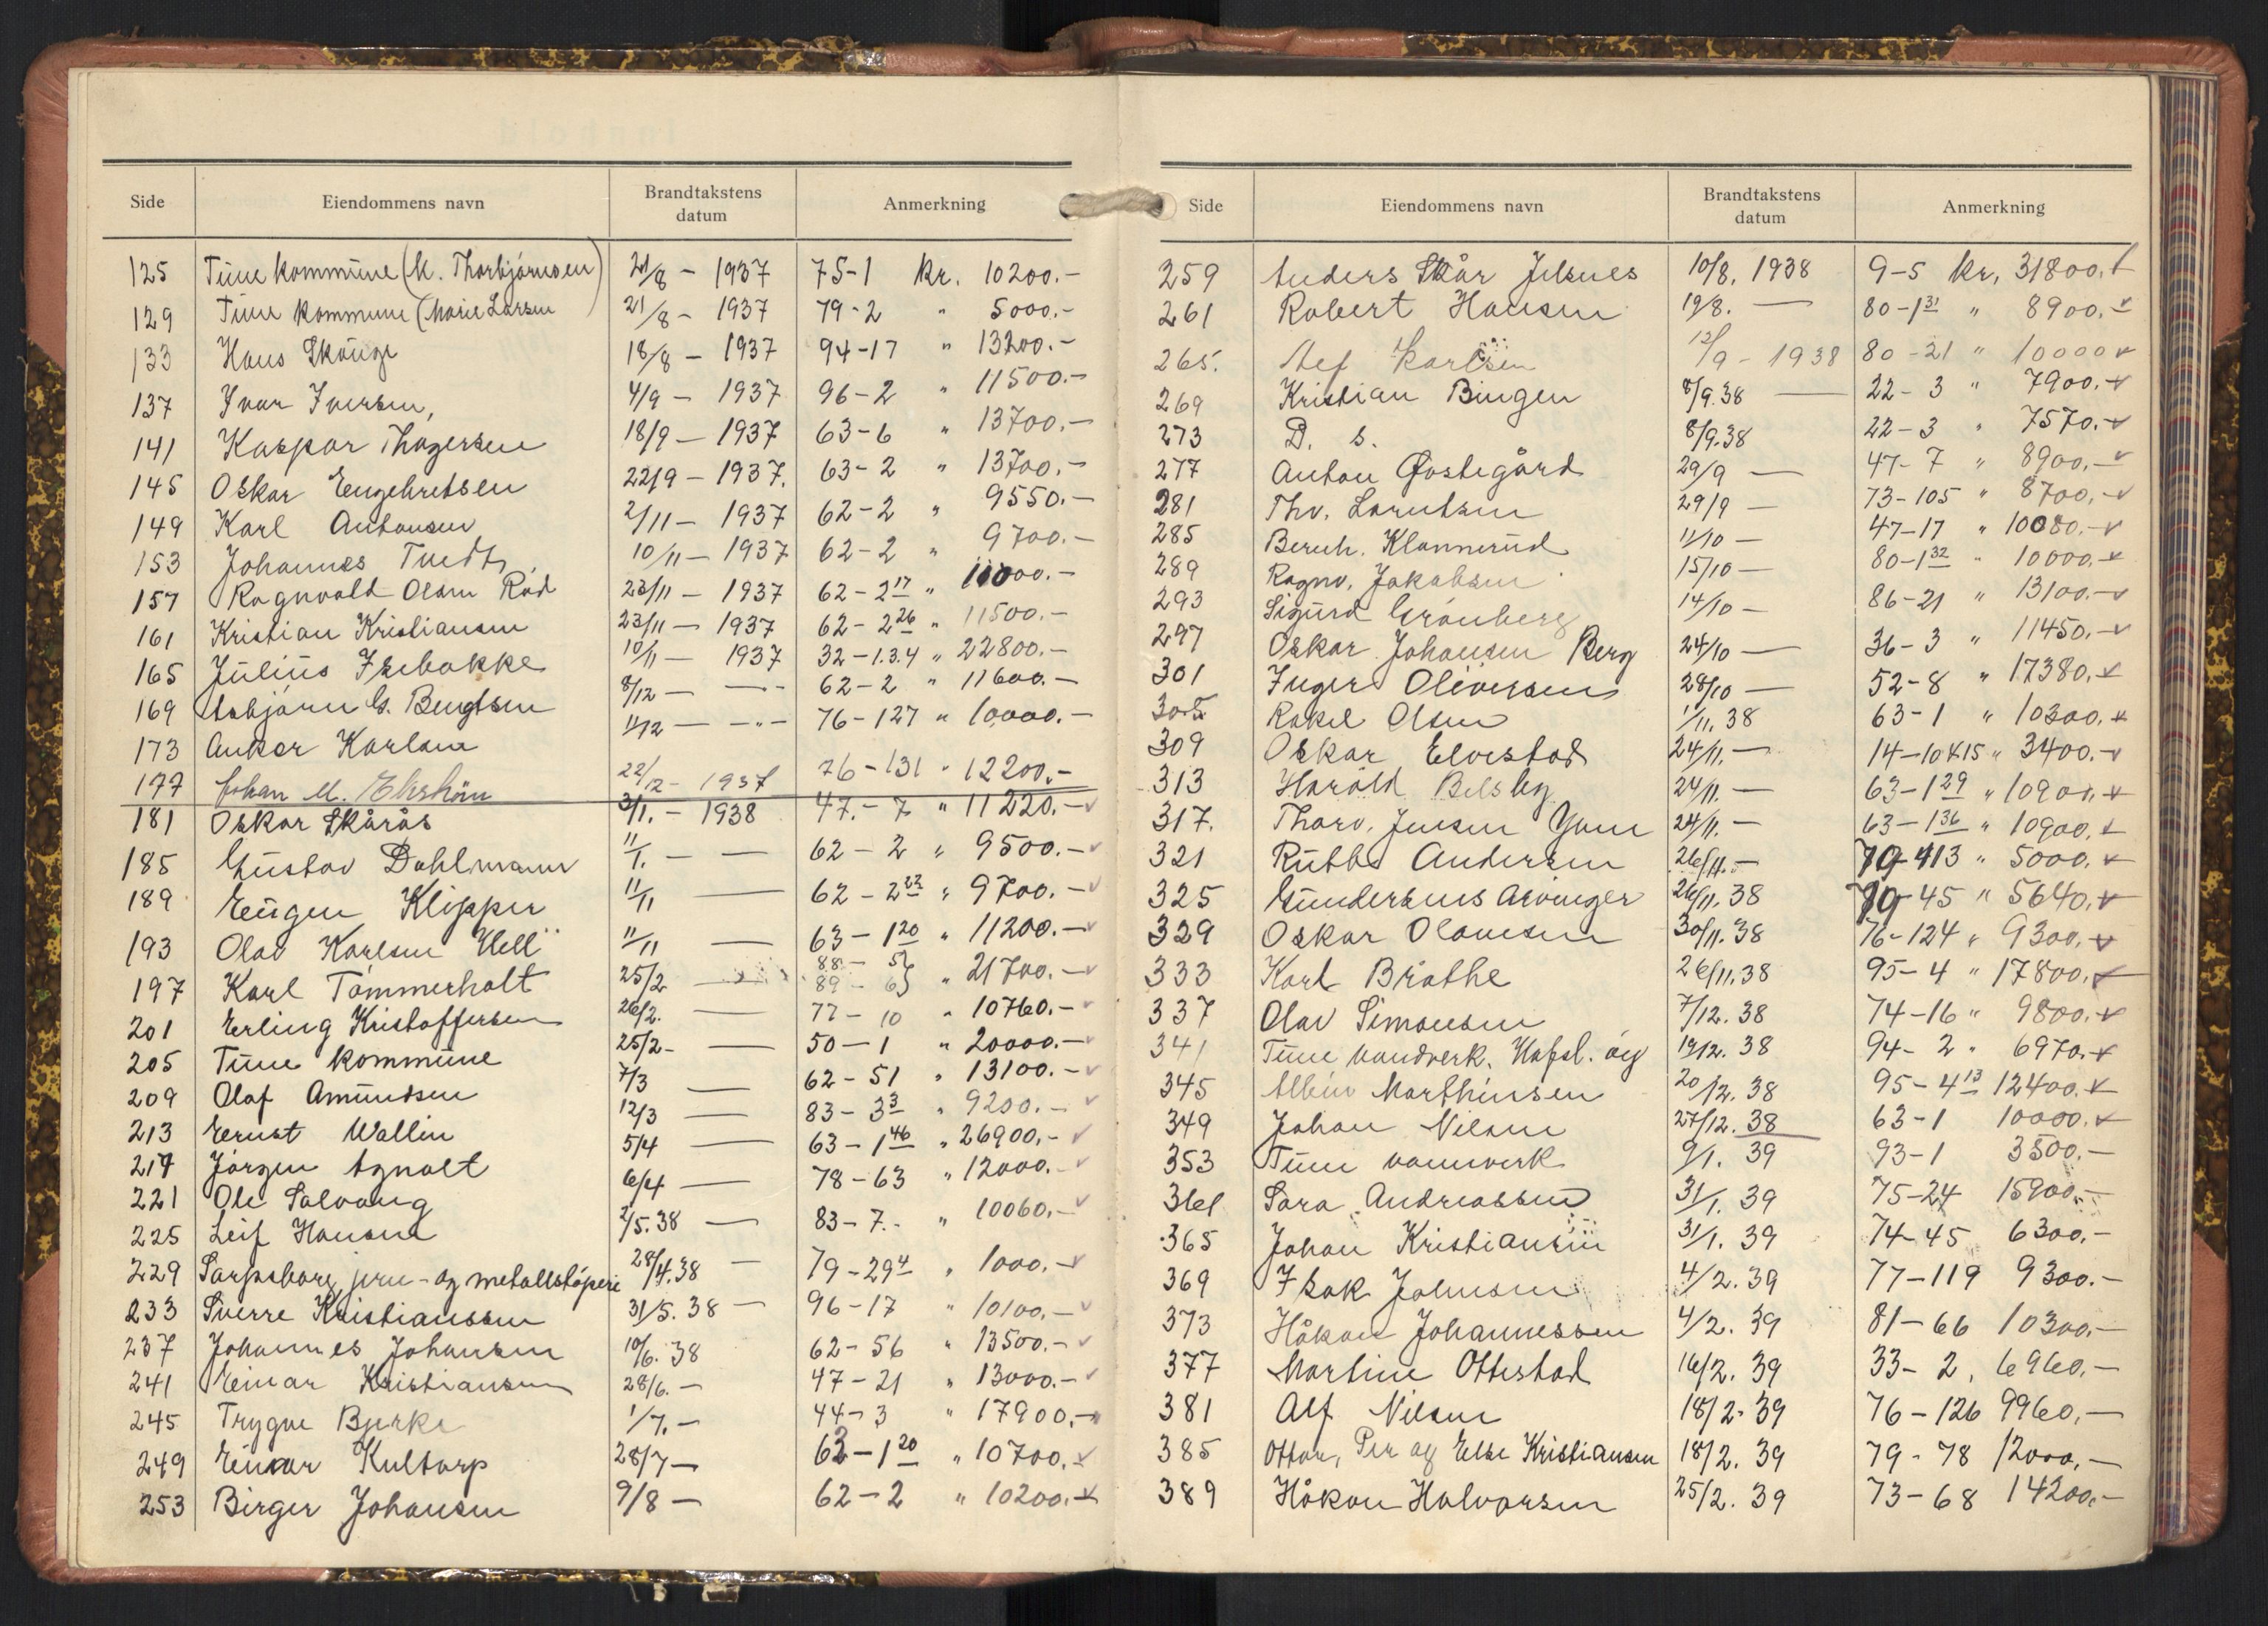 Side Eiendommens navn Brandtakstens datum Anmerkning
125 Tune kommune (M. Thorbjørnsen) 21/8 – 1937 75-1 kr. 10200.-
129 Tune kommune (Marie Larsen 21/8 – 1937 79-2 " 5000.-
133 Hans Skauge 18/8 – 1937 94-17 " 13200.-
137 Ivar Iversen, 4/9 – 1937 96-2 " 11500.-
141 Kaspar Thagersen 18/9 – 1937 63-6 " 13700.-
145 Oskar Engebretsen 22/9 – 1937. 63-2 " 13700.-
149 Karl Antonsen 2/11 – 1937 62-2 " 9550.-
153 Johannes Tvedt 10/11 – 1937 62-2 " 9700.-
157 Ragnvald Olsen Rød 23/11 – 1937 62-2 17 " 11000.-
161 Kristian Kristiansen 23/11 – 1937 62-2 26 " 11500.-
165 Julius Isebakke 10/11 – 1937 32-1.3.4 " 22800.-
169 Asbjørn G. Bengtsen 8/12 – -"- 62-2 " 11600.-
173 Anker Karlsen 11/12 – -"- 76-127 " 10,000.-
177 Johan M. 22/12 - 1937 76-131 " 12200.-
181 Oskar Skårås 3/1. – 1938 47.-7 " 11220.-
185 Gustav Dahlmann 11/1. – — 62-2 " 9500.-
189 Eugen Klipper 11/11 — 62-2 22 " 9700.-
193 Olav Karlsen Hell 11/11 — 63-1 20 " 11200.-
197 Karl Tømmerholt 25/2 — 88-5 89-6 " 21700.-
201 Erling Kristoffersen 26/2. — 77-10 " 10760.-
205 Tune kommune 25/2- — 50-1 " 20000.-
209 Olaf Amundsen 7/3 — 62-51 " 13100.-
213 Ernst Wallin 12/3 — 83-3 3 " 9200.-
217 Jørgen Agnalt 5/4 — 63-1 46 " 26900.-
221 Ole Solvang 6/4 — 78-63 " 12000.-
225 Leif Hansen 2/5.38 — 83-7.- " 10060.-
229 Sarpsborg jern- og metallstøperi 28/4.38 — 79-29 4 " 1000.-
233 Sverre Kristianssen 31/5.38 — 96-17 " 10100.-
237 Johannes Johansen 10/6. 38 62-56 " 13500.-
241 Einar Kristiansen 28/6.- 47-21 " 13000.-
245 Trygve Bjerke 1/7.- 44-3 " 17900.-
249 Einar Kultorp 28/7 – 63-1 20 " 10700.-
253 Birger Johansen 9/8 – 62-2 " 10200.-
Side Eiendommens navn Brandtakstens datum Anmerkning
259 Anders Skår Jelsnes 10/8. 1938 9-5 kr. 31800.-
261 Robert Hansen 19/8. — 80-1 31 " 8900.-
265. Karlsen 12/9 - 1938 80-21 " 10000
269 Kristian Bingen 8/9.38 — 22-3 " 7900.-
273 D. s. 8/9.38 22-3 " 7570.-
277 Anton Østegård 29/9 — 47-7 " 8900.-
281 Thv. Lorntsen 29/9 — 73-105 " 8700.-
285 Bernh. Klannerud 11/10 — 47-17 " 10080.-
289 Ragnv. Jakobsen 15/10 — 80-1 32 " 10000.-
293 Sigurd Grønberg 14/10 – 86-21 " 13100.-
297 Oskar Johansen Berg 24/10 — 36-3 " 11450.-
301 Inger Oliversen 28/10 — 52-8 " 17380.-
305 Rakel Olsen 1/11. 38 63-1 " 10300.-
309 Oskar Elvestad 24/11.— 14-10&15 " 3400.-
313 Harald Belsby 24/11. — 63-1 29 " 10900.-
317. Thorv. Jensen Yven 24/11. — 63-1 36 " 10900.-
321 Ruth Andersen 26/11.– 79-413 " 5000.-
325 Gundersens arvinger 26/11. 38 79-45 " 5640.-
329 Oskar Olaussen 30/11.38 76-124 " 9300.-
333 Karl Bråthe 26/11.38 95-4 " 17800.-
337 Olav Simonsen 7/12. 38 74-16 " 9800.-
341 Tune vandverk. Hafsl. og 19/12. 38 94-2 " 6970.-
345 Albin Marthinsen 20/12. 38 95-4 13 12400.-
349 Johan Nilsen 27/12. 38 63-1 10000.-
353 Tune vannverk 9/1. 39 93-1 3500.-
361 Sara Andreassen 31/1. 39 75-24 15900.-
365 Johan Kristiansen 31/1. 39 74-45 6300.-
369 Isak Johnsen 4/2. 39 77-119 9300.-
373 Håkon Johannessen 4/2. 39 81-66 10300.-
377 Martine Ottestad 16/2. 39 33-2, 6960.-
381 Alf Nilsen 18/2. 39 76-126 9960.-
385 Ottar, Per og Else Kristiansen 18/2. 39 79-78 12000.-
389 Håkon Halvorsen 25/2. 39 73-68 14200.-